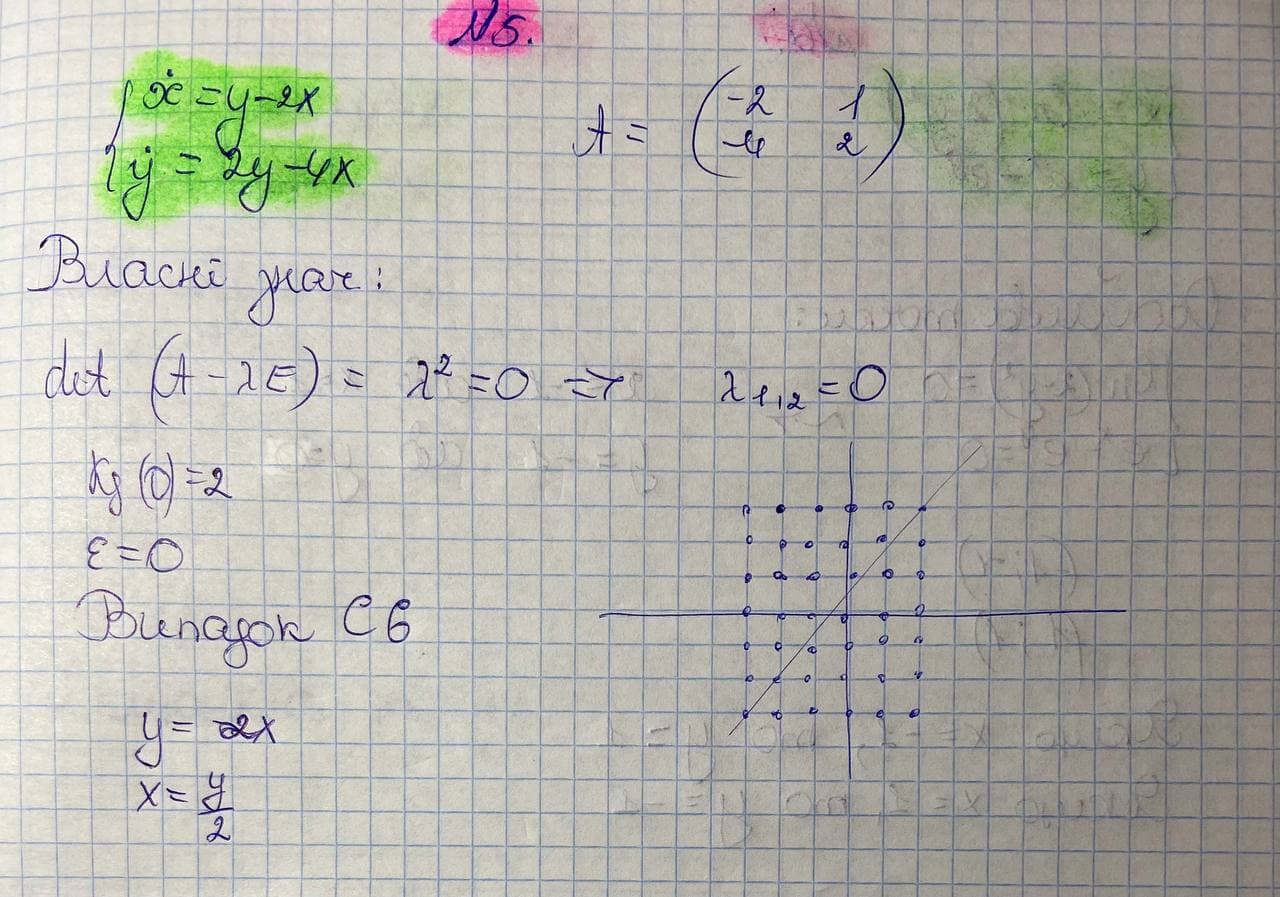 №5.
{ ẋ = y-2x
{ ẏ = 2y-4x
A = (-2 1
-4 2)
Власні знач:
det (A - λE) = λ² = 0 => λ₁,₂ = 0
Kg (0) = 2
ε = 0
Випадок С6
y = 2x
x = y/2